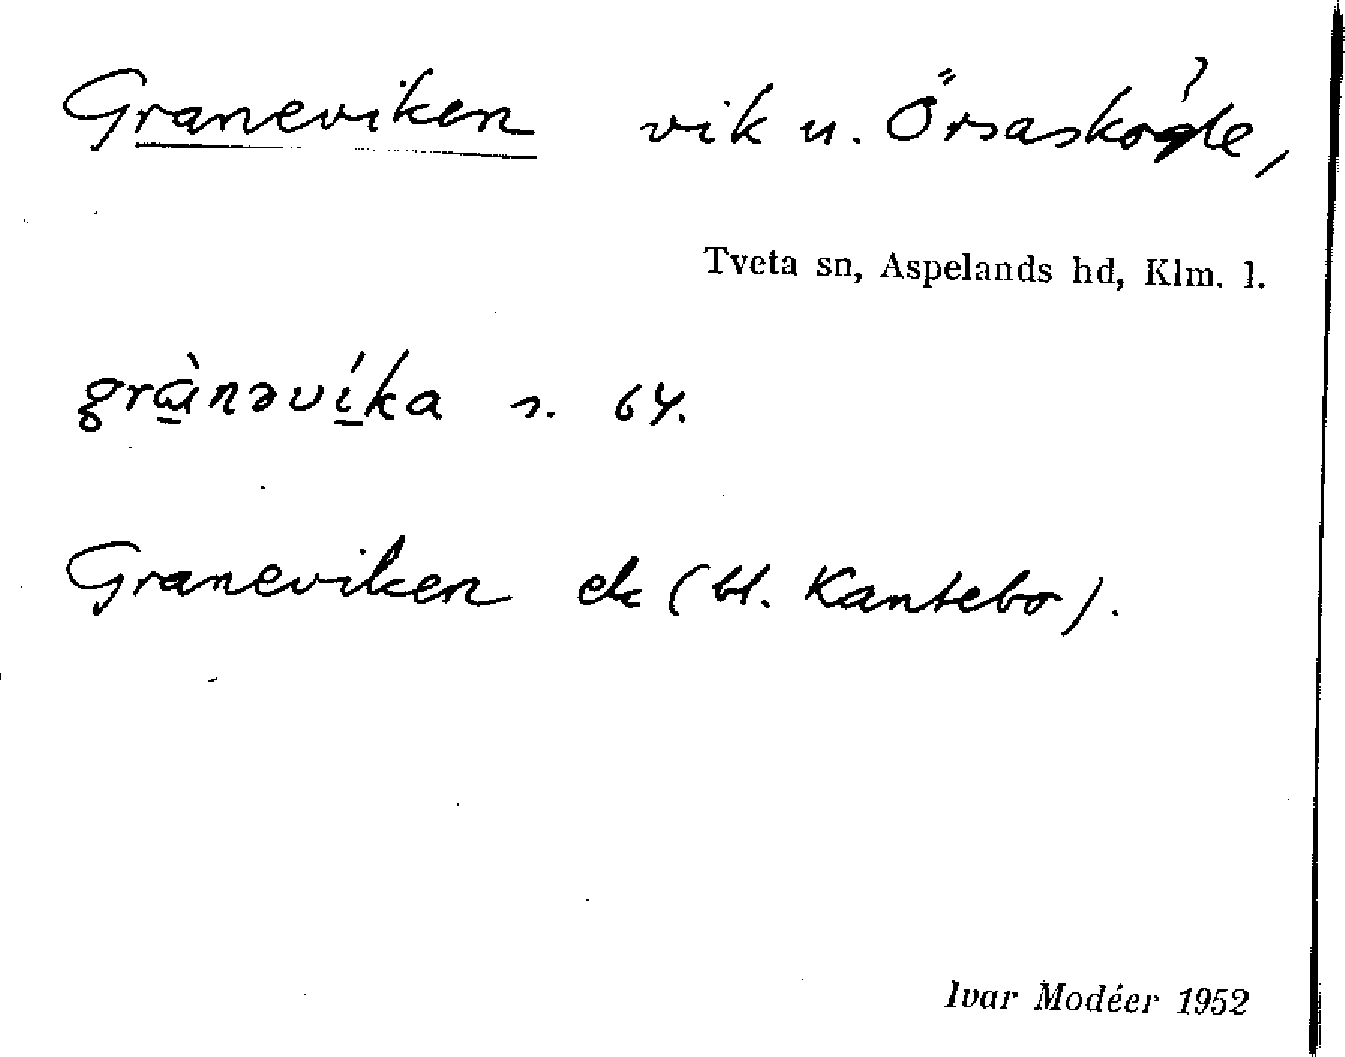 Graneviken vik u. Örsaskogle,
Tveta sn, Aspelands hd, Klm. l.
grànəvíka s. 64.
Graneviken ek (bl. Kantebo).
Ivar Modéer 1952